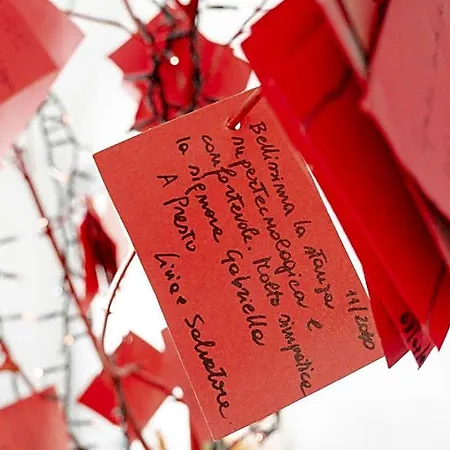 Bellissima la stanza
supertecnologica e
confortevole. Molto simpatica
la signora Gabriella
A Presto
Livia e Salvatore